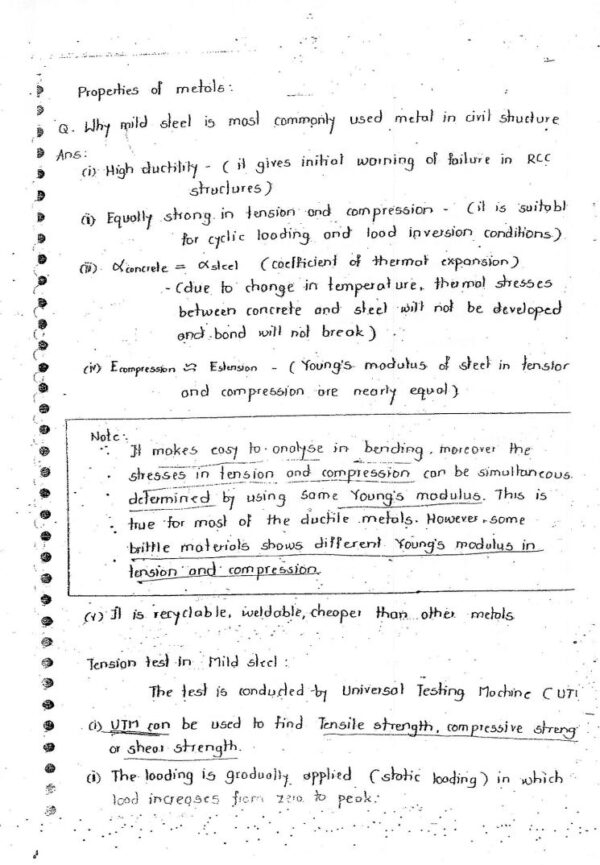 Properties of metals:
Q. Why mild steel is most commonly used metal in civil structure
Ans:
(i) High ductility - ( it gives initial warning of failure in RCC
structures )
(ii) Equally strong in tension and compression - (it is suitabl
for cyclic loading and load inversion conditions)
(iii) αconcrete = αsteel (coefficient of thermal expansion)
- (due to change in temperature, thermal stresses
between concrete and steel will not be developed
and bond will not break )
(iv) Ecompression ≈ Etension - ( Young's modulus of steel in tension
and compression are nearly equal )
Note:
It makes easy to analyse in bending, moreover the
stresses in tension and compression can be simultaneous
determined by using same Young's modulus. This is
true for most of the ductile metals. However, some
brittle materials shows different Young's modulus in
tension and compression
(v) It is recyclable, weldable, cheaper than other metals
Tension test in Mild steel :
The test is conducted by Universal Testing Machine ( UTM
(i) UTM can be used to find Tensile strength, compressive streng
or shear strength.
(ii) The loading is gradually applied (static loading) in which
load increases from zero to peak.